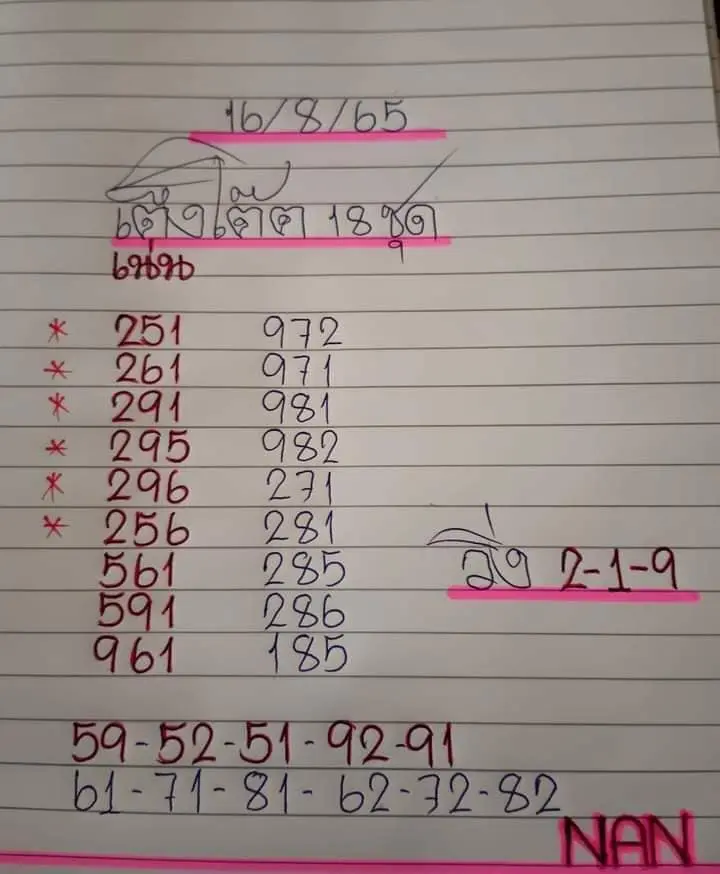 16/8/65
18 ชุด
เน้นๆ
* 251 972
* 261 971
* 291 981
* 295 982
* 296 271
* 256 281
561 285
591 286
961 185
วิ่ง 2-1-9
59-52-51-92-91
61-71-81-62-72-82
NAN